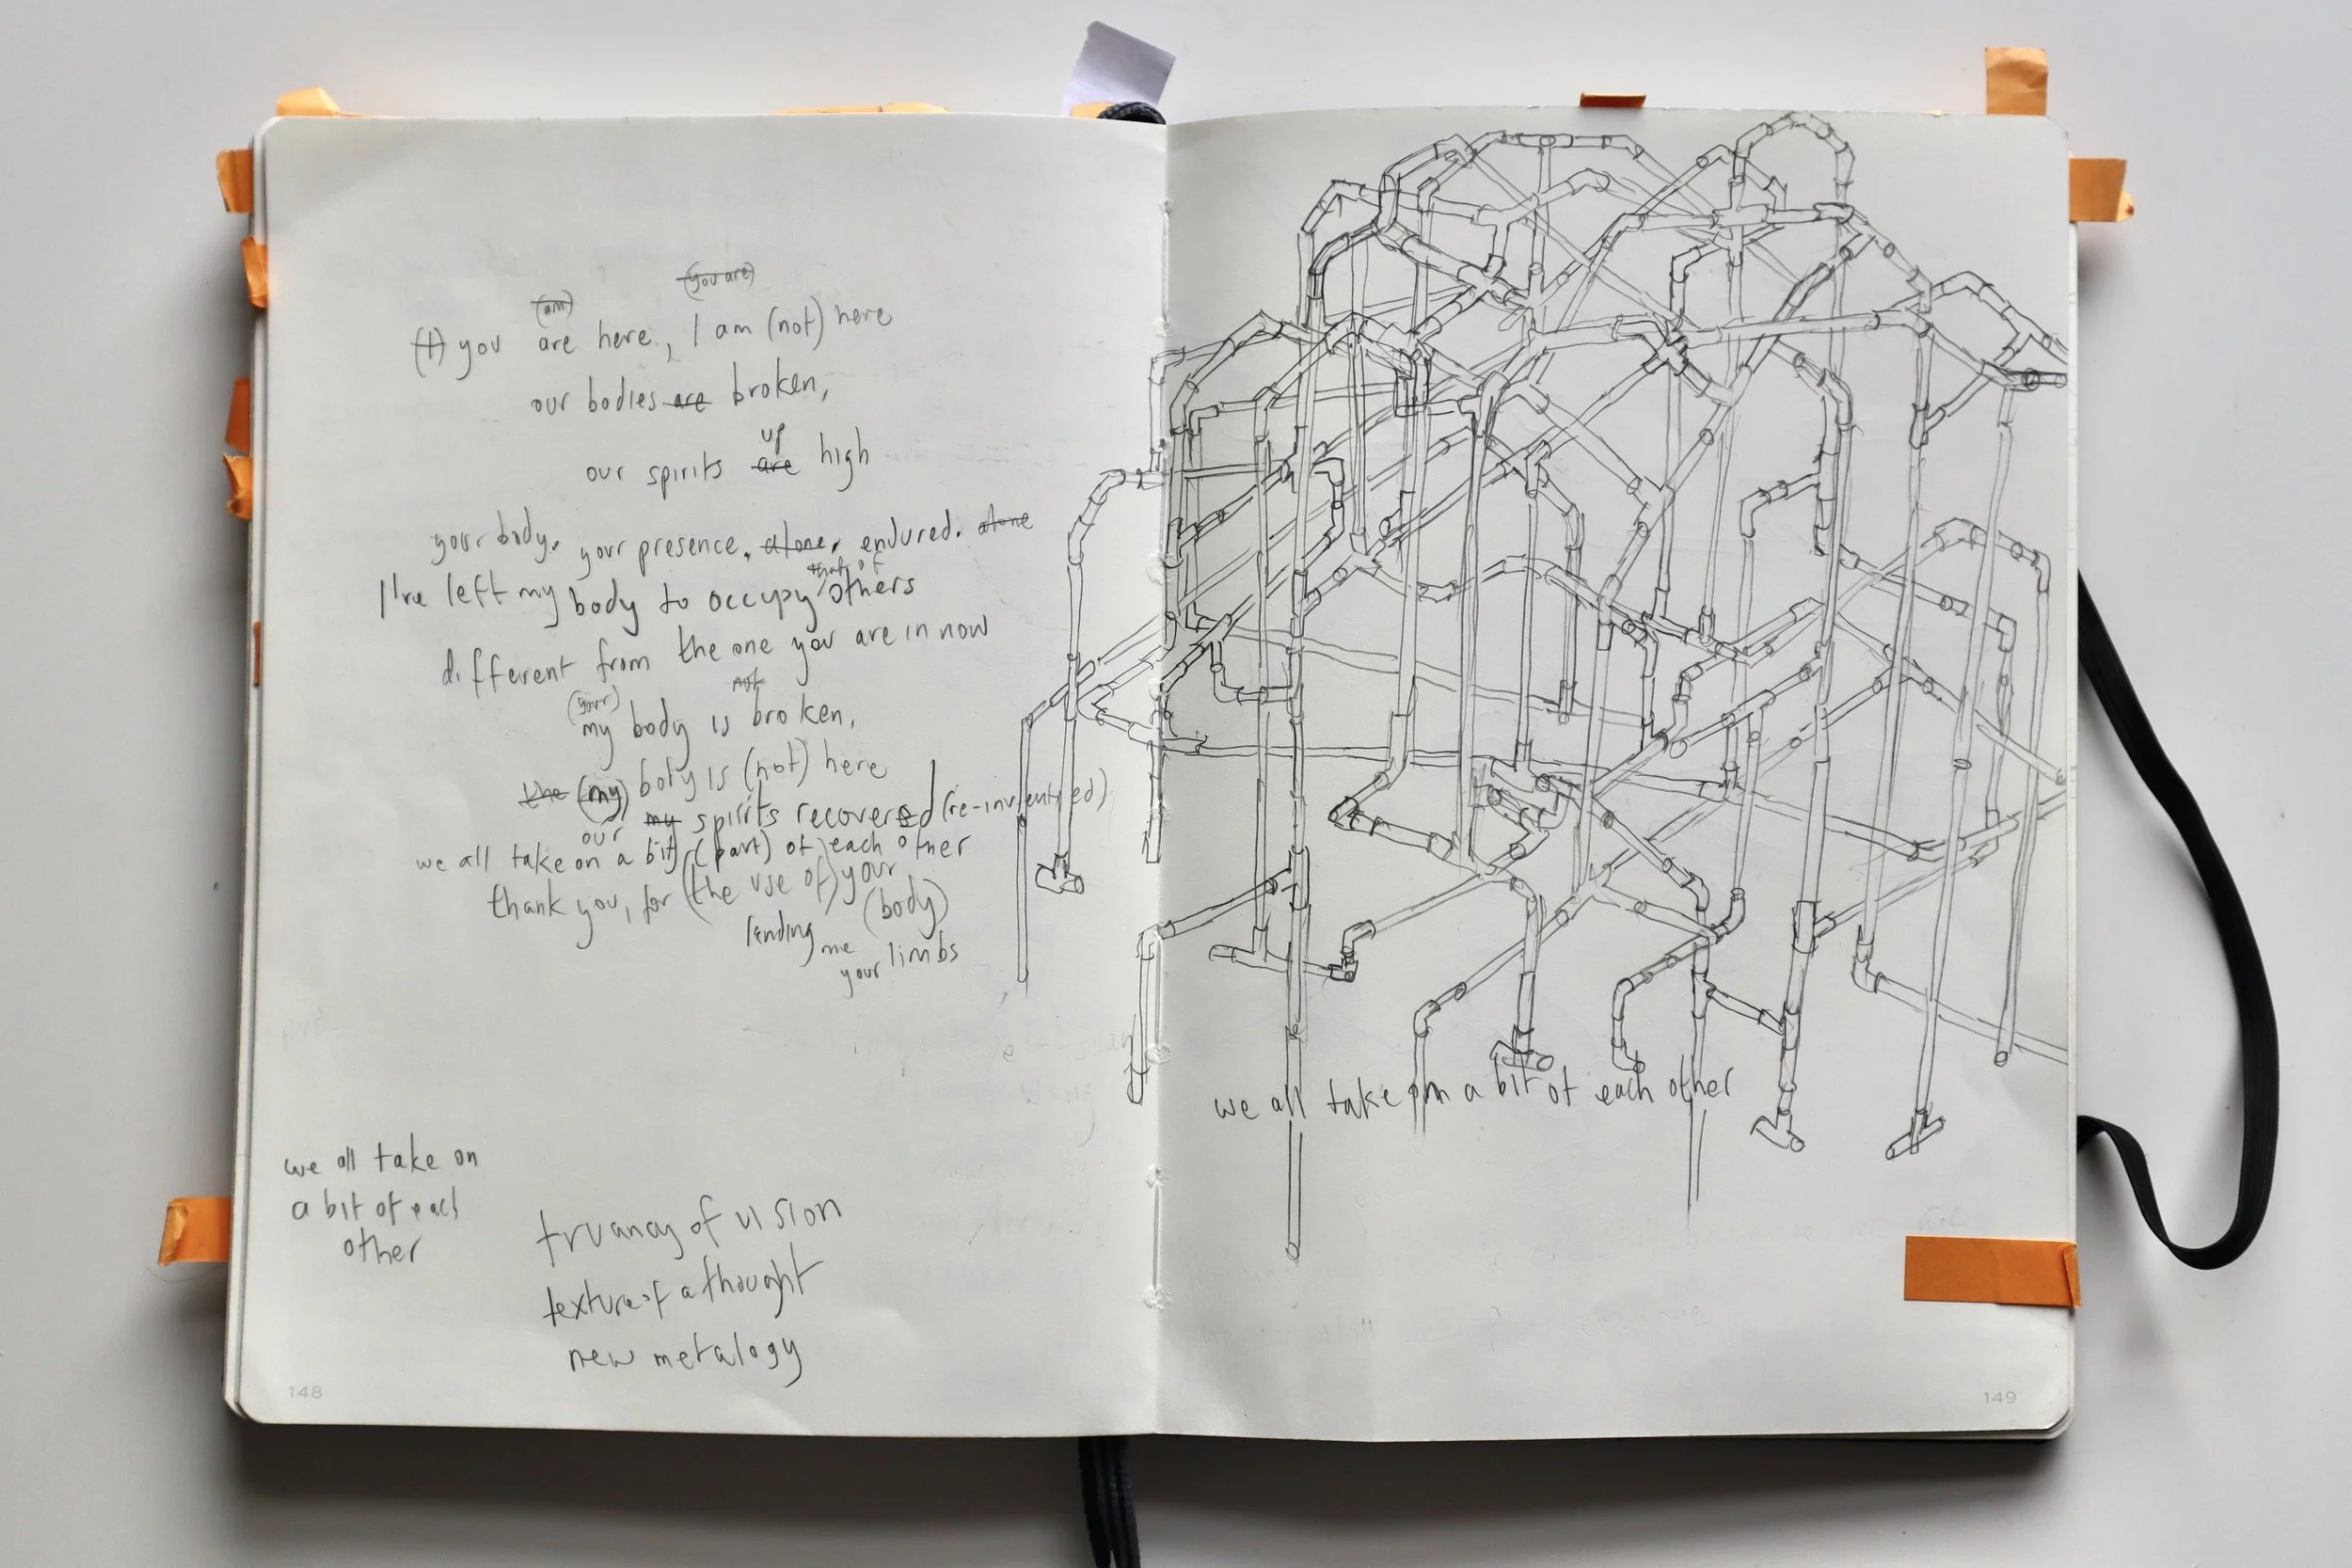 (you are)
(am)
(I) you are here, I am (not) here
our bodies are broken,
up
our spirits are high
your body. your presence. alone. endured. alone
that of
I've left my body to occupy others
different from the one you are in now
not
(your)
my body is broken,
the (my) body is (not) here
my spirits recovered (re-invented)
our
we all take on a bit (part) of each other
thank you, for (the use of) your
(body)
lending me
your limbs
we all take on
a bit of each
other
truancy of vision
texture of a thought
new metalogy
148
we all take on a bit of each other
149